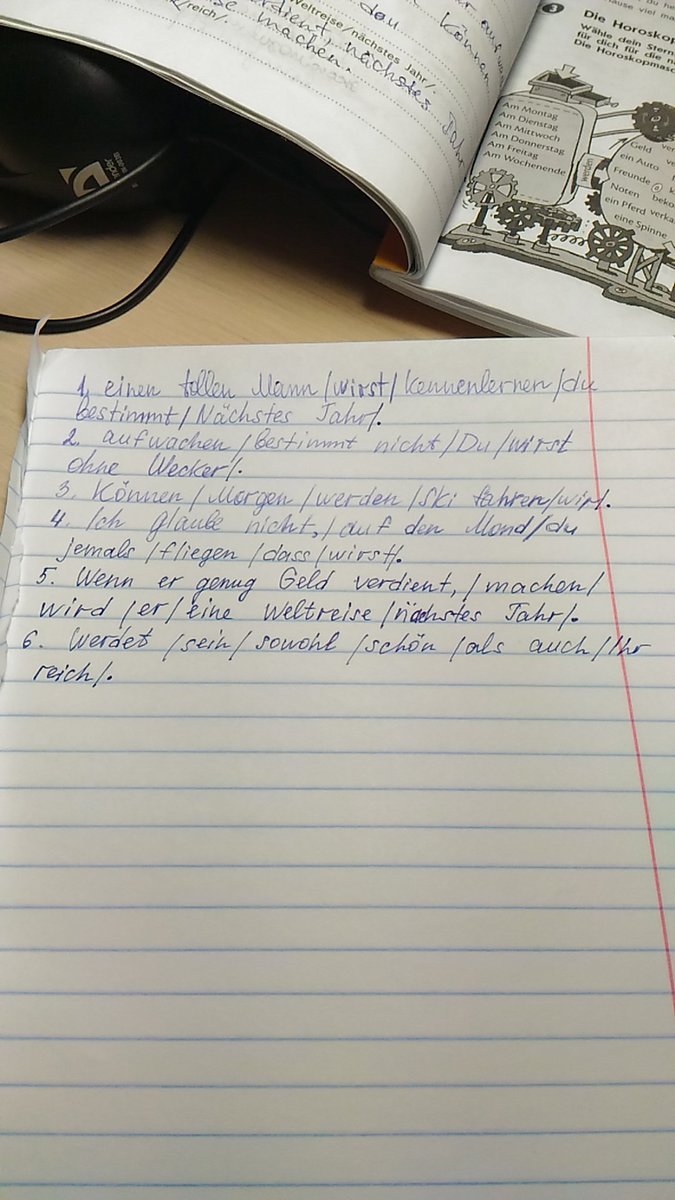 Weltreise/nächstes Jahr/.
reich/.
machen.
nächstes Jahr
können
3
Die Horoskop
Wähle dein Stern
für dich für die
Die Horoskopmas
Am Montag
Am Dienstag
Am Mittwoch
Am Donnerstag
Am Freitag
Am Wochenende
werden
Geld
ein Auto
Freunde
Noten
ein Pferd
eine Spinne
1. einen tollen Mann /wirst/ kennenlernen /du
bestimmt / Nächstes Jahr/.
2. aufwachen / bestimmt nicht / Du / wirst
ohne Wecker/.
3. Können / Morgen / werden / Ski fahren / wir/.
4. Ich glaube nicht, / auf den Mond / du
jemals / fliegen / dass / wirst/.
5. Wenn er genug Geld verdient, / machen /
wird / er / eine Weltreise / nächstes Jahr/.
6. Werdet / sein / sowohl / schön / als auch / Ihr
reich/.